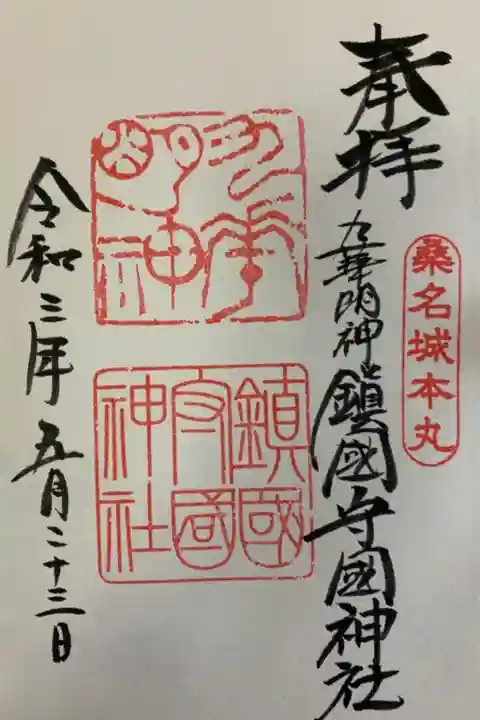 桑名城本丸
奉拝
九華明神鎮國守國神社
九華
明神
鎮國
守國
神社
令和三年五月二十三日